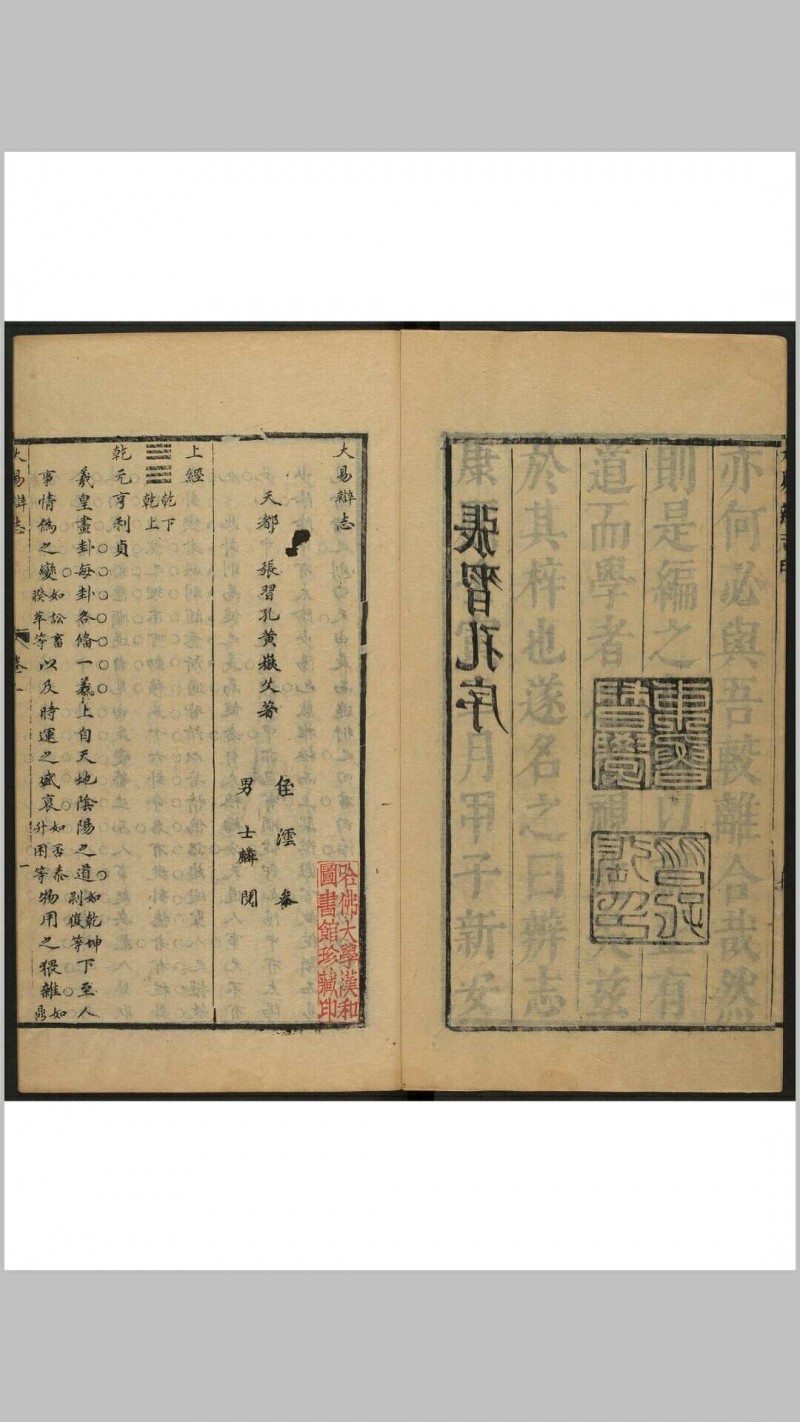 亦何必與吾較離合哉然
則是編之
以
有
道而學者
視
茲
於其梓也遂名之曰辨志
康
月甲子新安
張習孔序
大易辯志
天都 張習孔黃嶽父著
侄 澐 叅
男 士麟 閱
哈佛大學漢和
圖書館珍藏印
上經
䷀ 乾下
乾上
乾元亨利貞
羲皇畫卦每卦各備一義上自天地陰陽之道如乾坤剝復等下至人
事情僞之變如訟畜睽萃等以及時運之盛衰如否泰升困等物用之猥雜如鼎
大易辯志 卷一 一